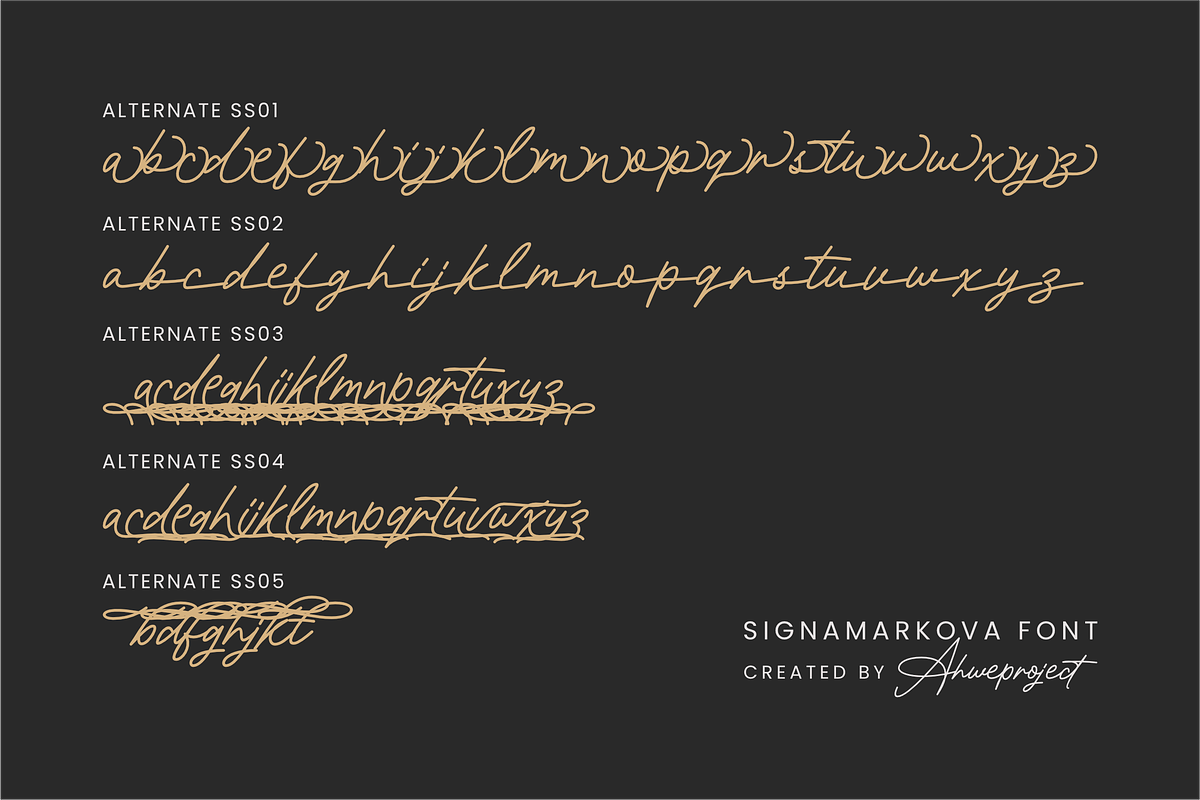 ALTERNATE SS01
abcdefghijklmnopqrstuvwxyz
ALTERNATE SS02
abcdefghijklmnopqrstuvwxyz
ALTERNATE SS03
acdeghijklmnpqrtuxyz
ALTERNATE SS04
acdeghijklmnpqrtuvwxyz
ALTERNATE SS05
bdfghjkt
SIGNAMARKOVA FONT
CREATED BY Ahweproject